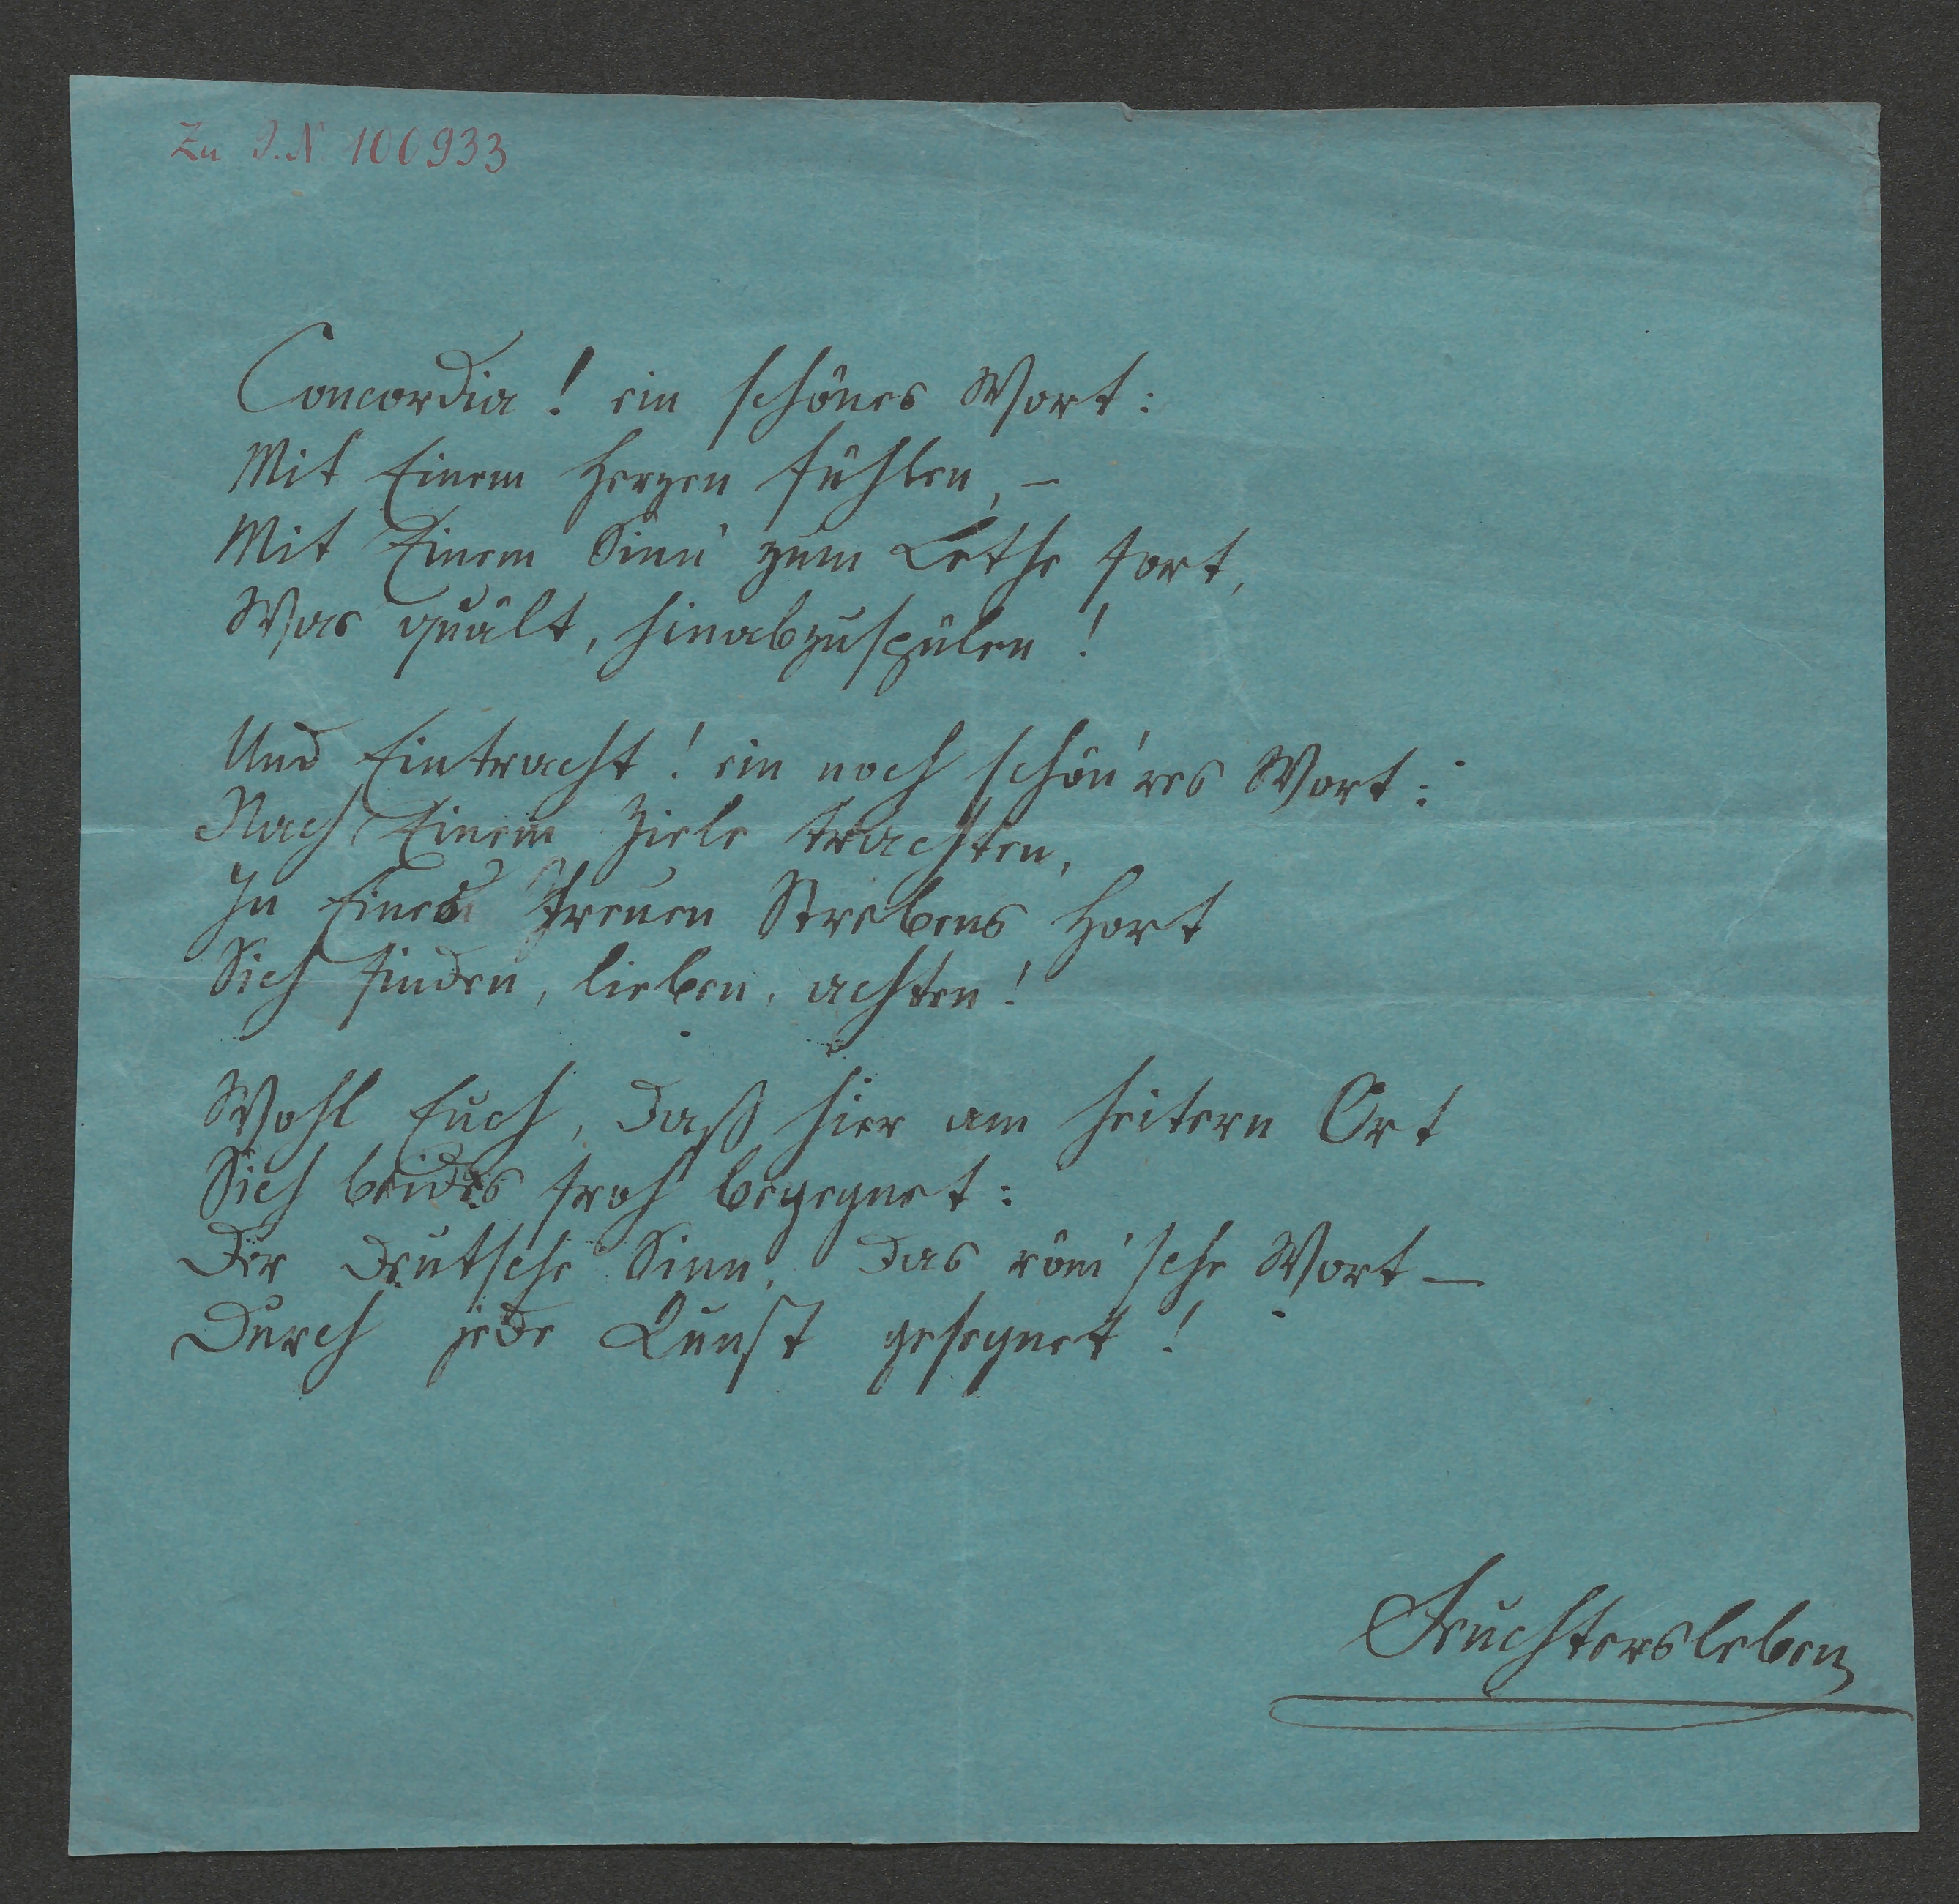 Zu I.N. 100933
Concordia! ein schönes Wort:
Mit Einem Herzen fühlen, –
Mit Einem Sinn zum Lethe fort,
Was quält, hinabzuspülen!
Und Eintracht! ein noch schön'res Wort:
Nach Einem Ziele trachten,
In Eines treuen Strebens Hort
Sich finden, lieben, achten!
Wohl Euch, daß hier am heitern Ort
Sich beides froh begegnet:
Der deutsche Sinn, das röm'sche Wort –
Durch jede Kunst gesegnet!
Feuchtersleben